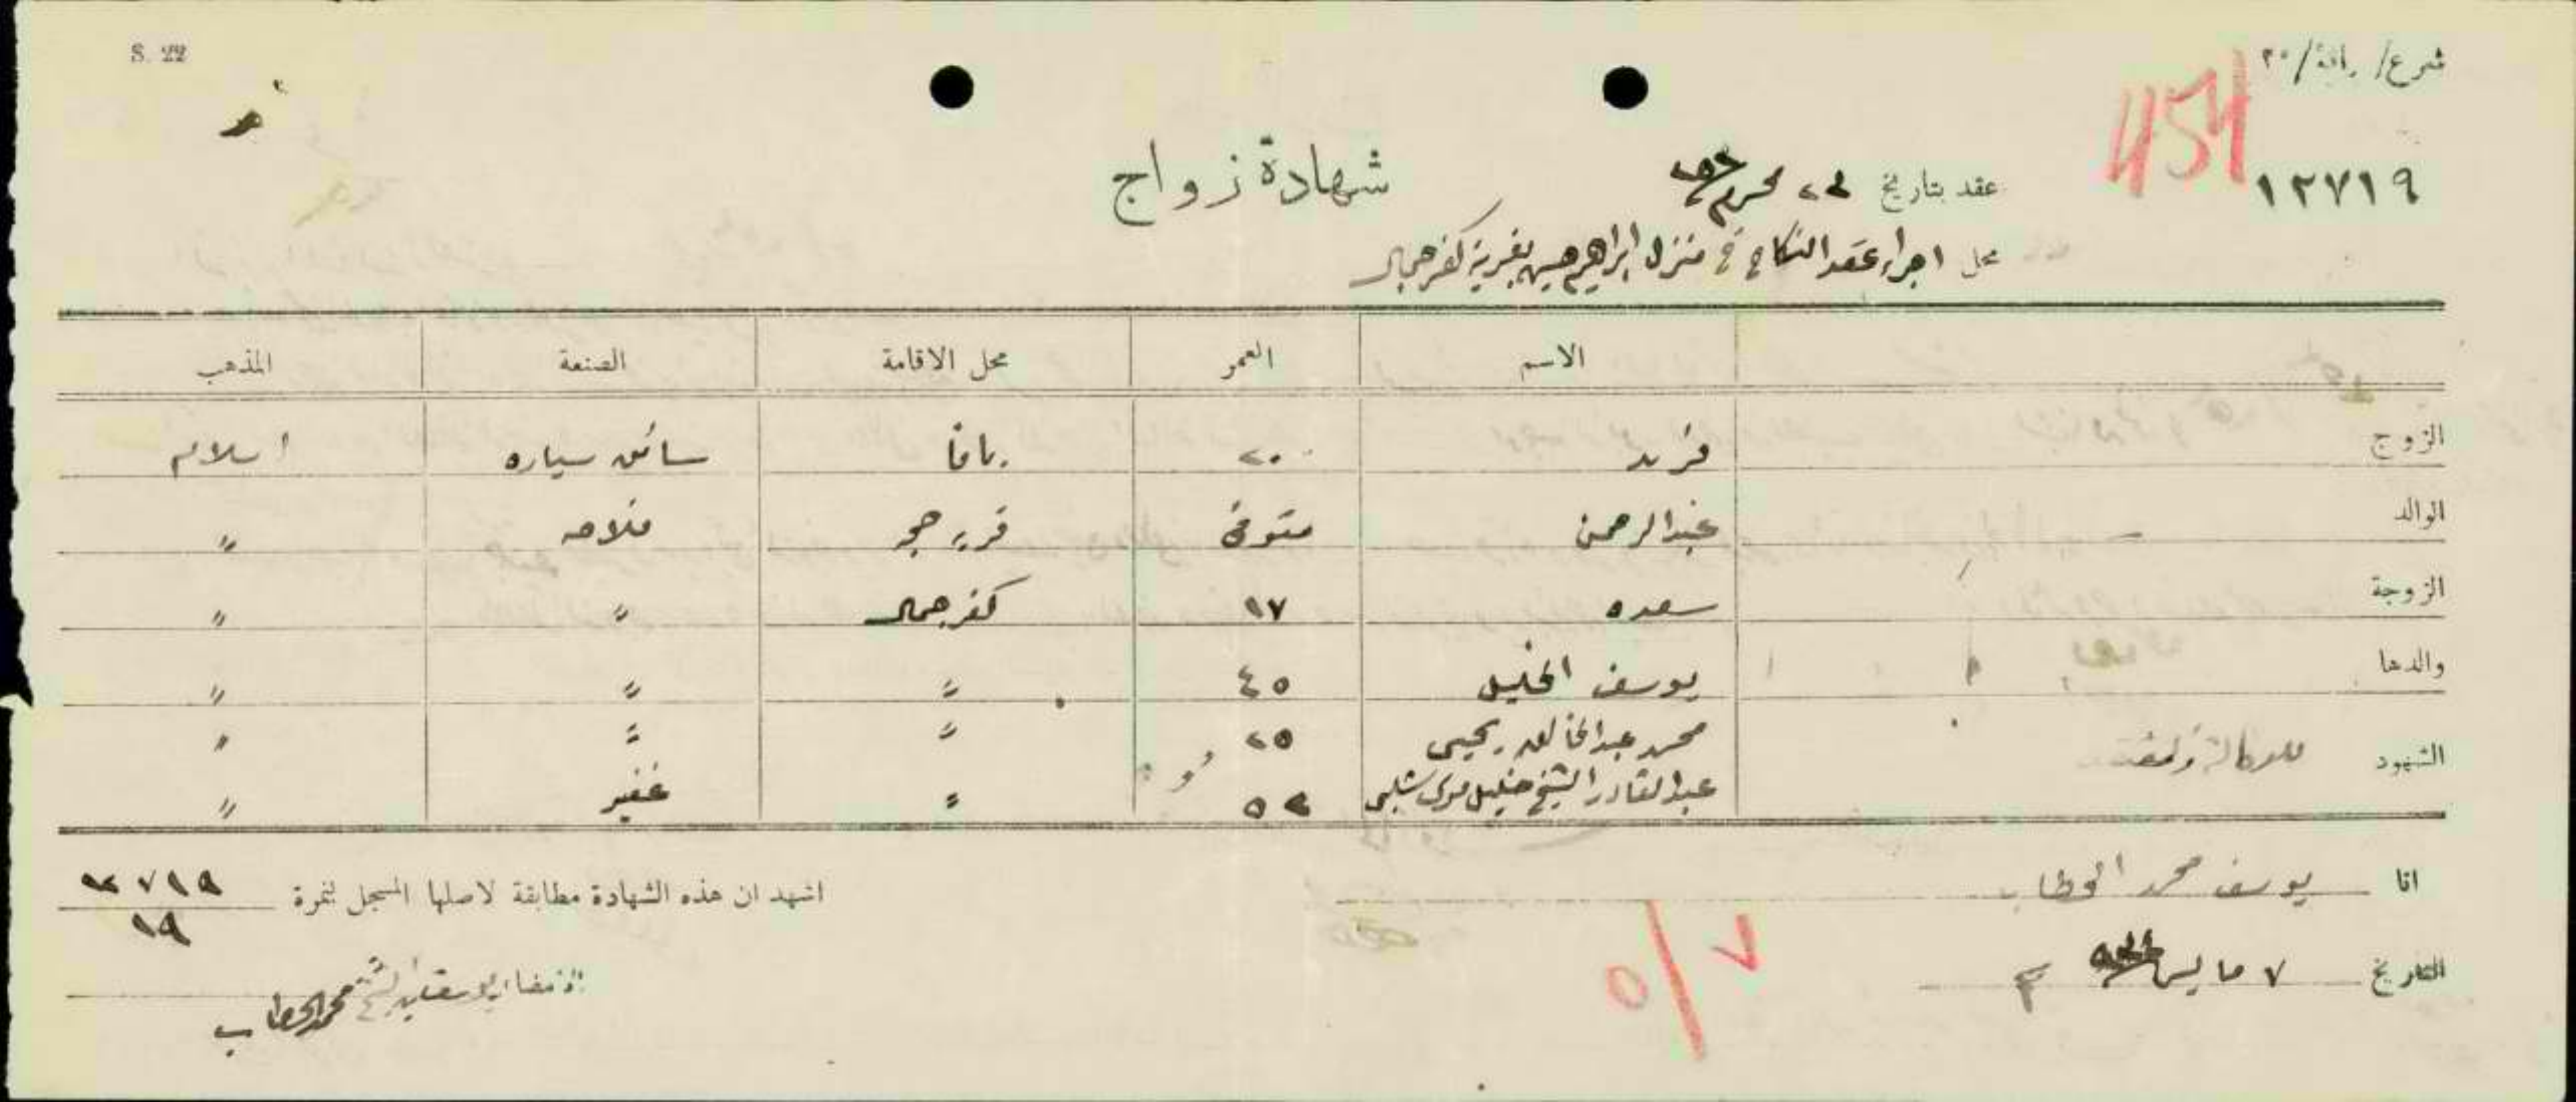 S. 22
شرع/ يافا/ ٢٠
454
١٢٧١٩
شهادة زواج
عقد بتاريخ محرم
محل اجراء عقد النكاح في منزل ابراهيم حسين بقرية كفرجمال
الاسم العمر محل الاقامة الصنعة المذهب
الزوج فريد ٢٠ يافا سائق سياره اسلام
الوالد عبدالرحمن متوفى قرية حجه فلاحه "
الزوجة سعده ١٧ كفرجمال " "
والدها يوسف الخليل ٤٥ " " "
الشهود محمد عبدالخالق يحيى ٢٥ " " "
عبدالقادر الشيخ خليل موسى شلبي ٥٢ " غفير "
انا يوسف محمد الحطاب اشهد ان هذه الشهادة مطابقة لاصلها المسجل بنمرة ١٢٧١٩
١٩
التاريخ ٧ مايس
٧/٥
محمد الحطاب